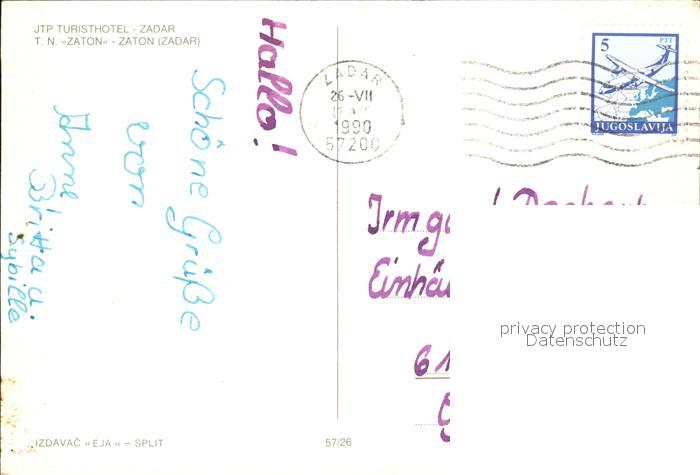 JTP TURISTHOTEL - ZADAR
T. N. »ZATON« - ZATON (ZADAR)
Hallo!
Schöne Grüße
vom
Britta u.
Sybille
ZADAR
26-VII
1990
57200
5
PTT
JUGOSLAVIJA
privacy protection
Datenschutz
IZDAVAČ »EJA« – SPLIT
57/26